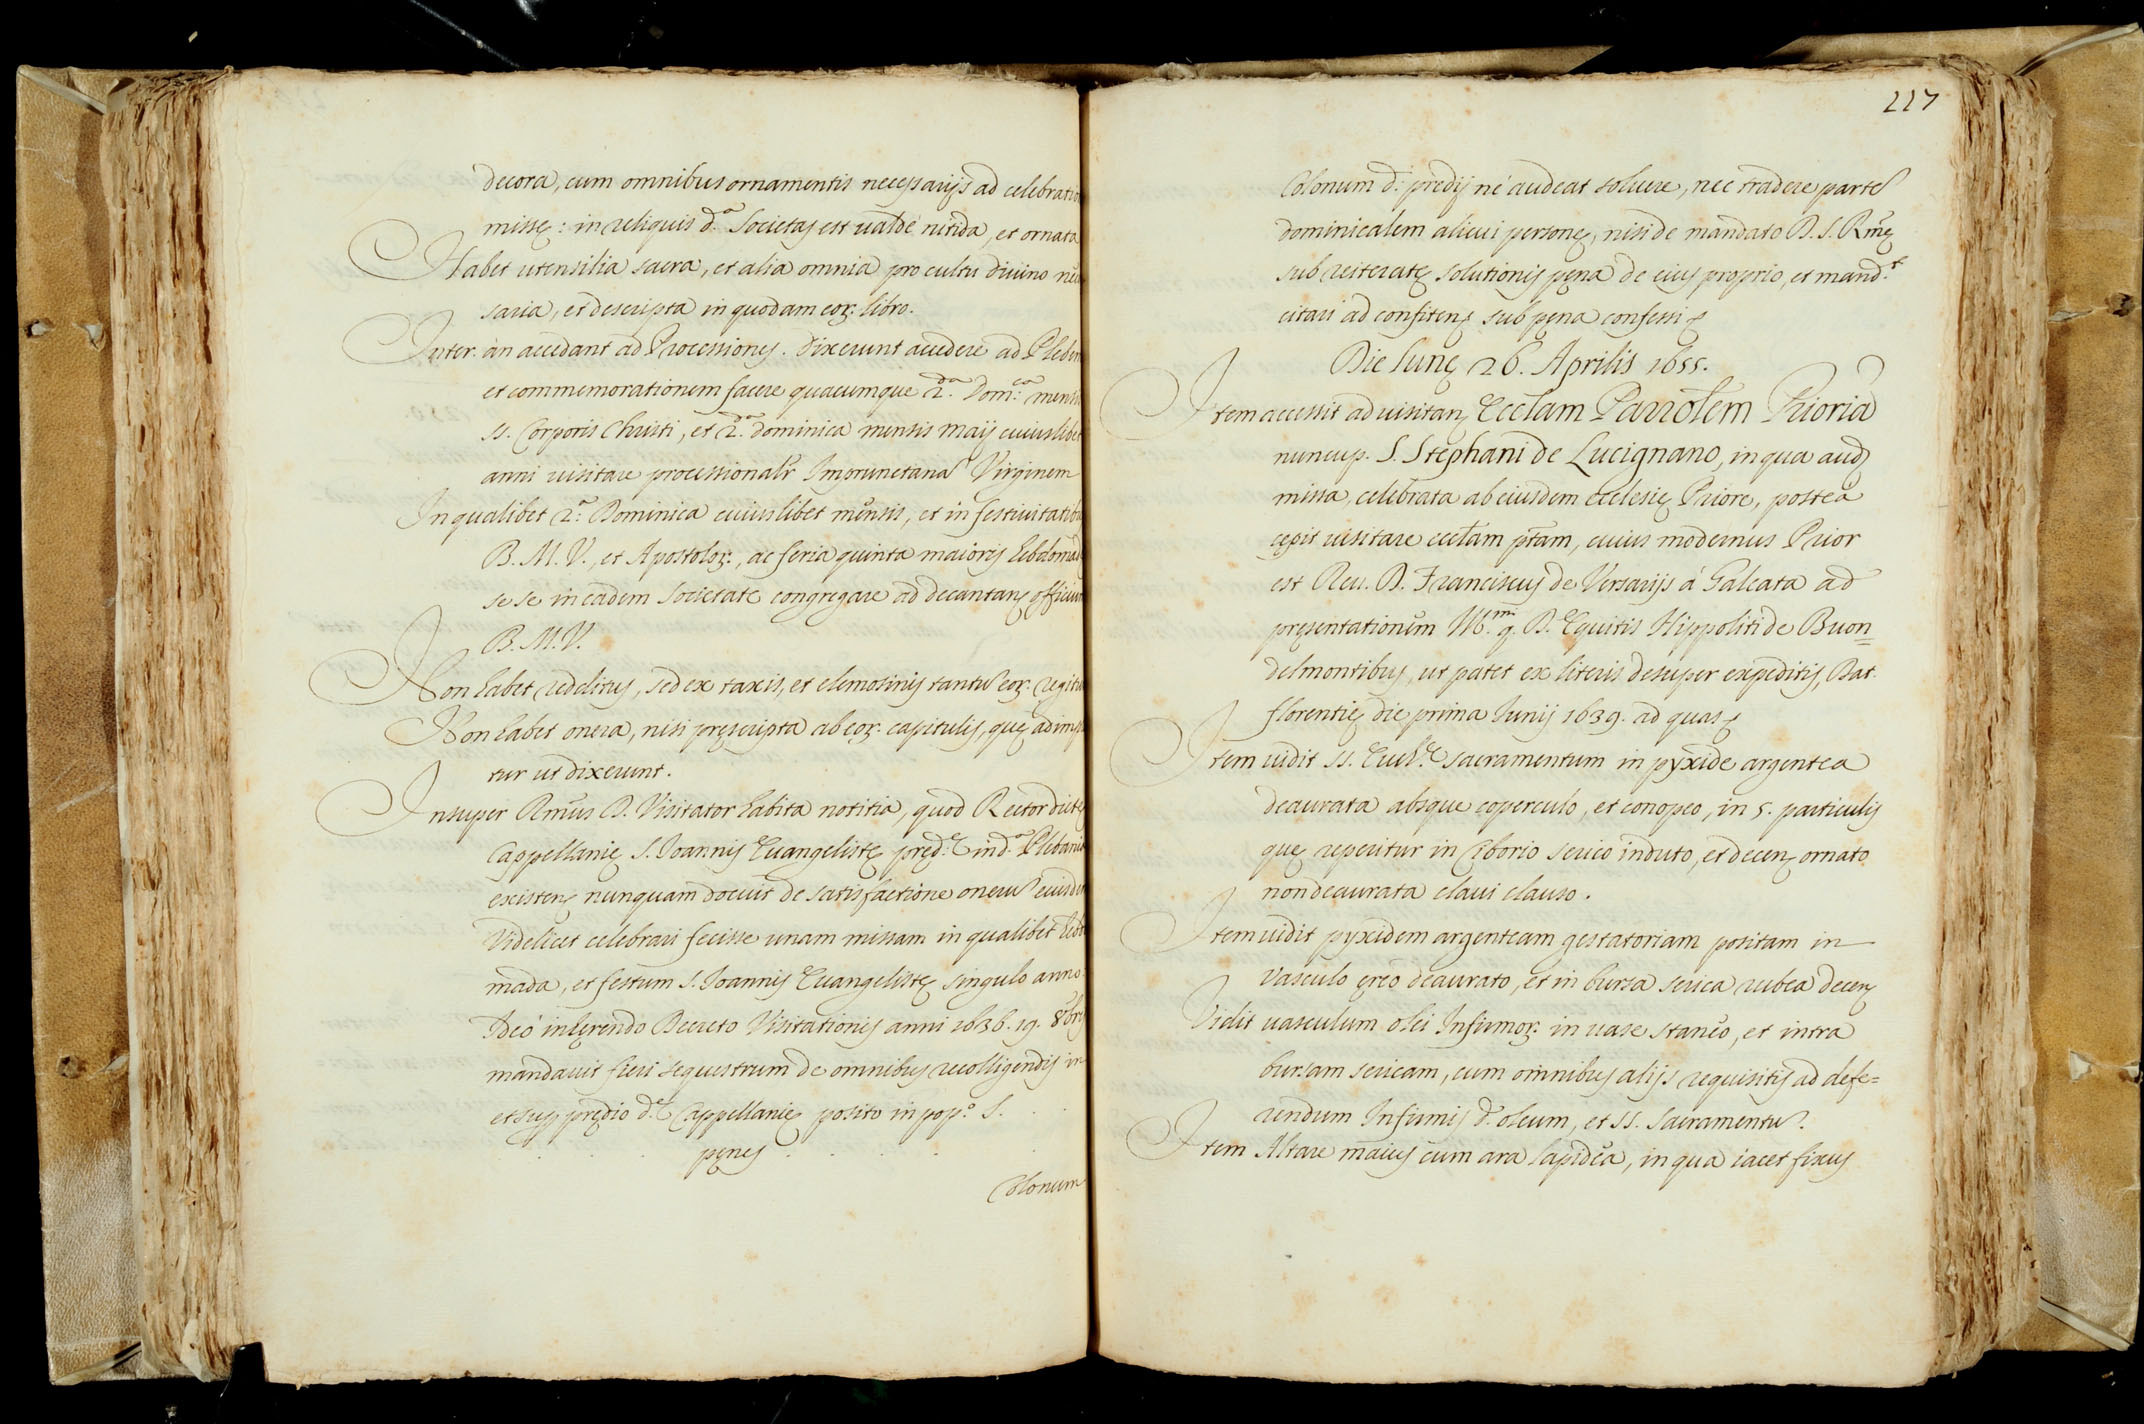 decora, cum omnibus ornamentis necessarijs ad celebratio
missę: in reliquis d.ª Societas est ualdè nitida, et ornata
Habet utensilia sacra, et alia omnia pro cultu diuino
saria, et descripta in quodam eoꝝ: libro.
Inter. an accedant ad Processiones. dixerunt accedere ad Plebem
et commemorationem facere quacumque 2.da Dom.ca mensis
SS. Corporis Christi, et 2.ª dominica mensis maij cuiuslibet
anni uisitare processionalr̃ Imprunetanã Virginem
In qualibet 2.ª Dominica cuiuslibet mensis, et in festiuitatibu
B. M. V., et Apostoloꝝ:, ac feria quinta maioris Ebdomad
sese in eadem societate congregare ad decantanȝ officium
B. M. V.
Non habet redditus, sed ex taxis, et elemosinis tantũ eoꝝ: regitu
Non habet onera, nisi pręscripta ab eoꝝ: capitulis, quę adimp
tur ut dixerunt.
Insuper Rmũs D. Visitator habita notitia, quod Rector dictę
Cappellanię S. Joannis Euangelistę pręd.ę in d.ª Plebania
existenȝ nunquam docuit de satisfactione onerũ eiusdẽ
Videlicet celebrari fecisse unam missam in qualibet hebdo
mada, et festum S. Joannis Euangelistę singulo anno.
Ideò inhęrendo Decreto Visitationis anni 1636. 19. 8bris
mandauit fieri sequestrum de omnibus recolligendis in
et sup prędio d.ę Cappellanię posito in pop.º S. . .
. . . pęnes . . . . .
Colonum
227
Colonum d.i prędij nè audeat soluere, nec tradere partẽ
dominicalem alicui personę, nisi de mandato D. S. Rmę
sub reiteratę solutionis pęna de eius proprio, et mand.t
citari ad confitenȝ sub pęna confessi ȝ
Die Lunę 26. Aprilis 1655.
Item accessit ad uisitanȝ Ecclam Parrolem Prioriã
nuncup. S. Stephani de Lucignano, in qua audȝ
missa, celebrata ab eiusdem ecclesię Priore, posteà
cępit uisitare ecclam ptam, cuius modernus Prior
est Reu. D. Franciscus de Versarijs à Galeata ad
pręsentationem Ill.mi q. D. Equitis Hippoliti de Buon=
delmontibus, ut patet ex literis desuper expeditis, Dat.
florentię die prima Junij 1639. ad quas ȝ
Item uidit SS. Euch.ę sacramentum in pyxide argentea
deaurata absque coperculo, et conopeo, in 5. particulis
quę reperitur in Ciborio serico induto, et decenȝ ornato
non deaurata claui clauso.
Item uidit pyxidem argenteam gestatoriam positam in
vasculo ęreo deaurato, et in bursa serica rubea decenȝ
Vidit uasculum olei Infirmoꝝ: in uase staneo, et intra
bursam sericam, cum omnibus alijs requisitis ad defe=
rendum Infirmis d. oleum, et SS. sacramentũ.
Item Altare maius cum ara lapidea, in qua iacet fixus